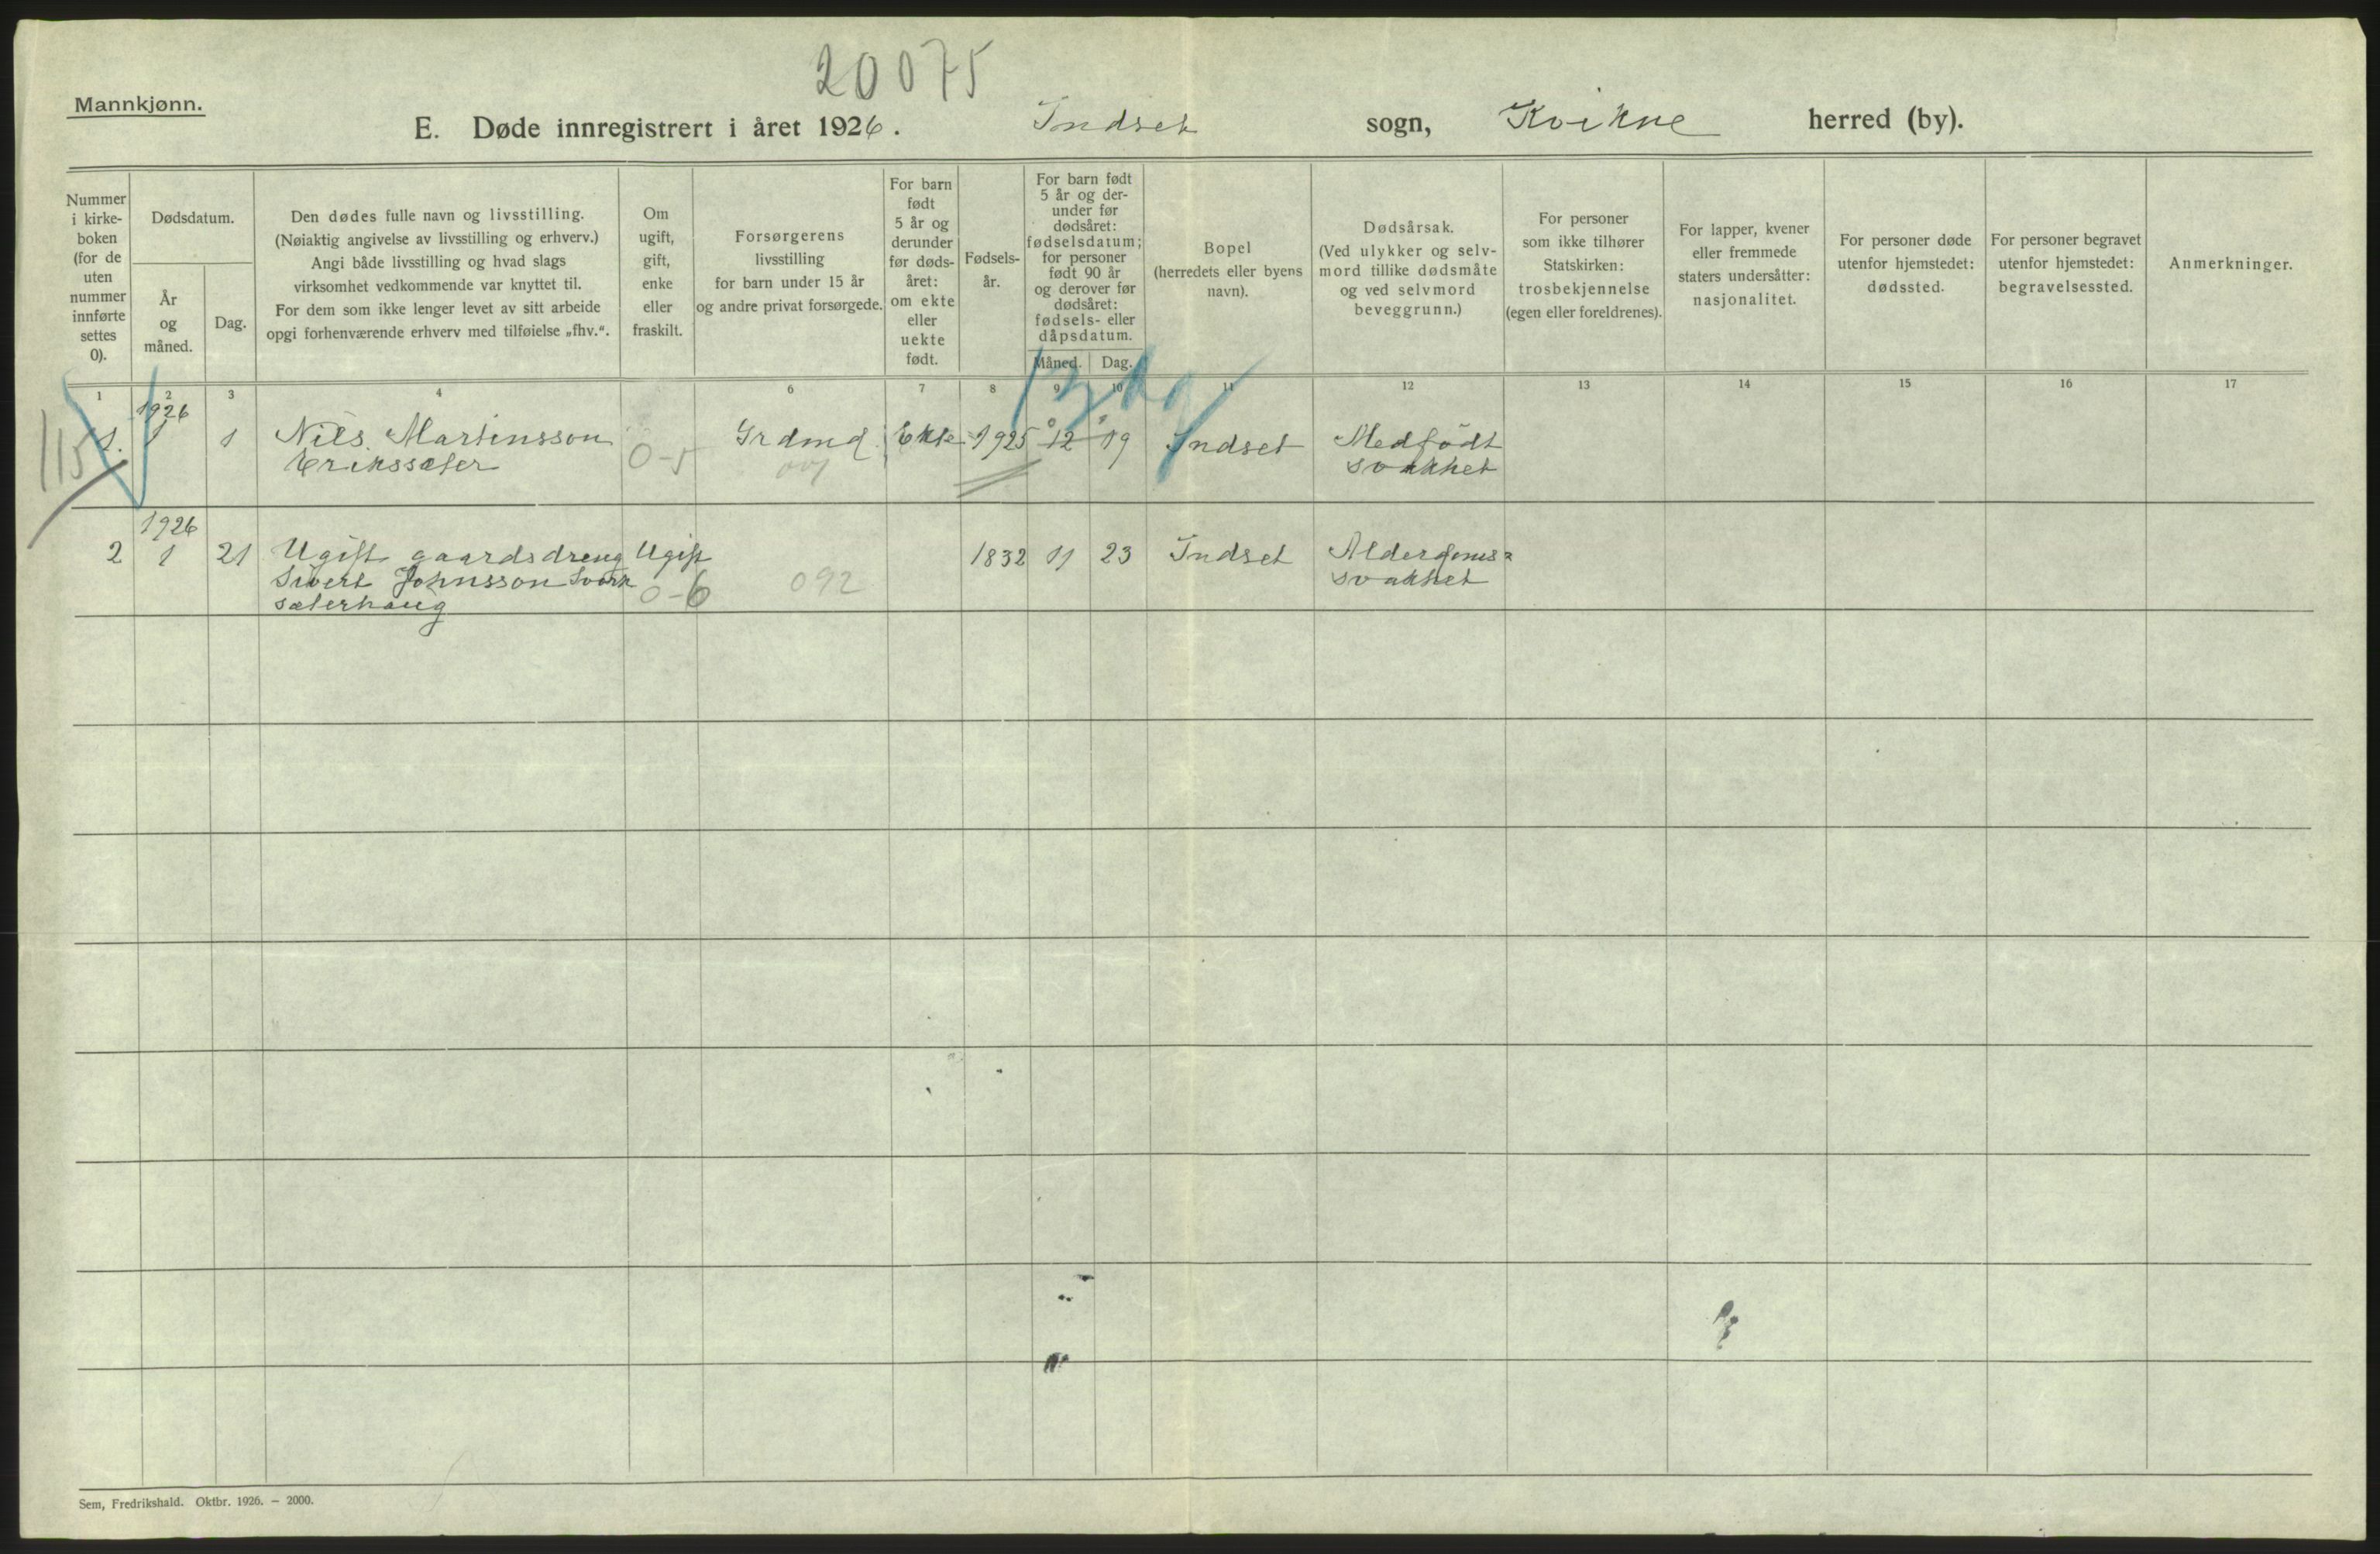 20075
Mannkjønn.
E. Døde innregistrert i året 1926. Indset sogn, Kvikne herred (by).
Nummer i kirke- boken (for de uten nummer innførte settes 0).
Dødsdatum.
År og måned.
Dag.
Den dødes fulle navn og livsstilling.
(Nøiaktig angivelse av livsstilling og erhverv.)
Angi både livsstilling og hvad slags
virksomhet vedkommende var knyttet til.
For dem som ikke lenger levet av sitt arbeide
opgi forhenværende erhverv med tilføielse „fhv.“.
Om ugift, gift, enke eller fraskilt.
Forsørgerens
livsstilling
for barn under 15 år
og andre privat forsørgede.
For barn født 5 år og derunder før døds- året: om ekte eller uekte født.
Fødsels- år.
For barn født
5 år og der-
under før
dødsåret:
fødselsdatum;
for personer
født 90 år
og derover før
dødsåret:
fødsels- eller
dåpsdatum.
Måned. Dag.
Bopel
(herredets eller byens
navn).
Dødsårsak.
(Ved ulykker og selv-
mord tillike dødsmåte
og ved selvmord
beveggrunn.)
For personer
som ikke tilhører
Statskirken:
trosbekjennelse
(egen eller foreldrenes).
For lapper, kvener
eller fremmede
staters undersåtter:
nasjonalitet.
For personer døde
utenfor hjemstedet:
dødssted.
For personer begravet
utenfor hjemstedet:
begravelsessted.
Anmerkninger.
1 2 3 4 6 7 8 9 10 11 12 13 14 15 16 17
13 dg
1926
115 1. 1 1 Nils Martinsson Grdmd. Ekte 1925 12 19 Indset Medfödt
Erikssæter 0-5 svakhet
1926
2 1 21 Ugift gaardsdreng Ugift 1832 11 23 Indset Alderdoms-
Sivert Johnsson Svork 0-6 092 svakhet
sæterhaug
Sem, Fredrikshald. Oktbr. 1926. – 2000.